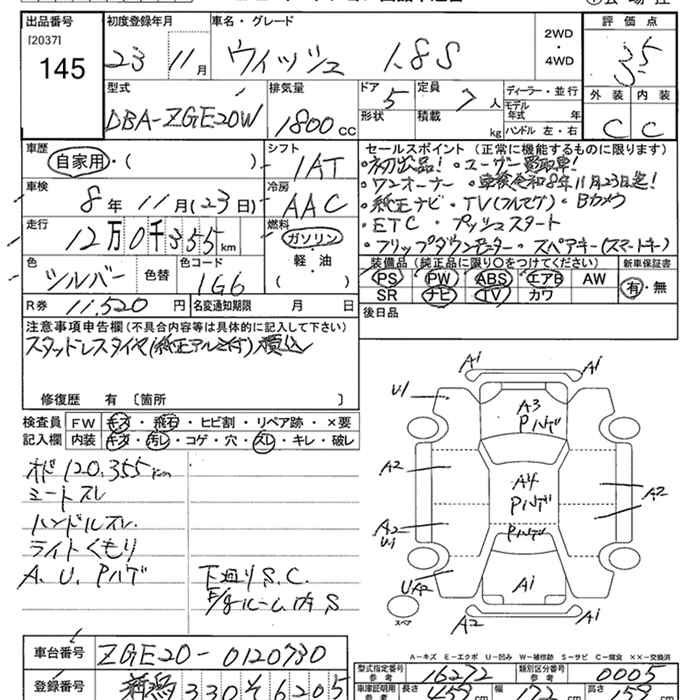 出品番号
[2037]
145
初度登録年月
23年 11月
車名・グレード
ウィッシュ 1.8S
2WD
・
4WD
評価点
3.5
外装 内装
C C
型式
DBA-ZGE20W
排気量
1800cc
ドア 5
形状
定員 7人
積載 kg
ディーラー・並行
モデル年式 年
ハンドル 左・右
車歴
自家用・( )
シフト
1AT
車検
8年 11月(23日)
冷房
AAC
走行
12万0千355km
燃料
ガソリン
軽・油
( )
色
シルバー
色替
色コード
1G6
R券 11,520円
名変通知期限 月 日
セールスポイント(正常に機能するものに限ります)
・初出品!・ユーザー買取車!
・ワンオーナー・車検令和8年11月23日迄!
・純正ナビ・TV(フルセグ)・Bカメラ
・ETC・プッシュスタート
・フリップダウンモニター・スペアキー(スマートキー)
装備品(純正品に限り○をつけてください)
PS PW ABS エアB AW
SR ナビ TV カワ
新車保証書
有・無
後日品
注意事項申告欄(不具合内容等は具体的に記入して下さい)
スタッドレスタイヤ(純正アルミ付)積込
修復歴 有 〔箇所 〕
検査員記入欄
FW キズ・飛石・ヒビ割・リペア跡・×要
内装 キズ・汚レ・コゲ・穴・スレ・キレ・破レ
メド120,355km
シートスレ
ハンドルスレ
ライトくもり
A.U.Pハゲ
下廻りS.C.
E/gルーム内S
A1
A1
A1
U1
A3
Pハゲ
A2
A4
Pハゲ
A2
A2
U1
Pハゲ
A1
スペア
A2
A1
A-キズ E-エクボ U-凹み W-補修跡 S-サビ C-腐食 ××-交換済
車台番号 ZGE20-0120730
登録番号 新潟 330 そ 6205
型式指定番号 参考 16272
類別区分番号 参考 0005
車庫証明用 参考
長さ cm
幅 cm
高さ cm